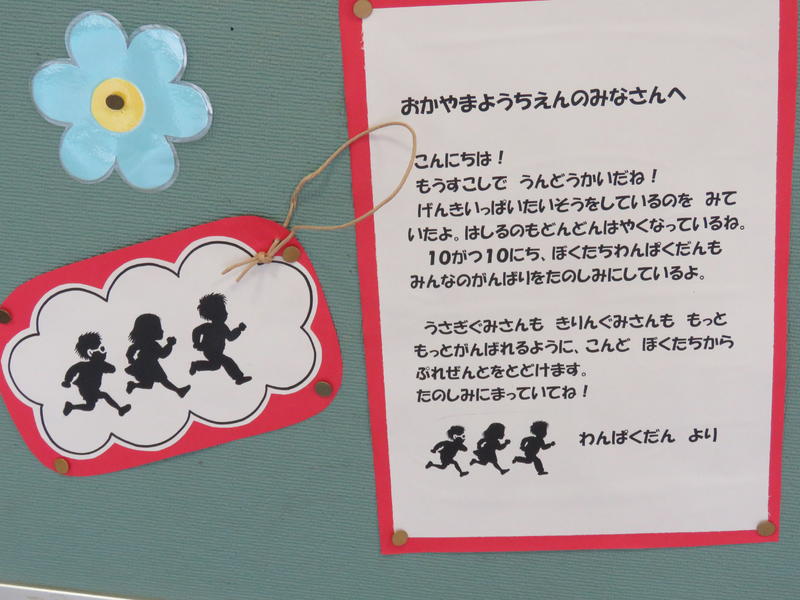 おかやまようちえんのみなさんへ
こんにちは！
もうすこしで　うんどうかいだね！
げんきいっぱいたいそうをしているのを　みて
いたよ。はしるのもどんどんはやくなっているね。
10がつ10にち、ぼくたちわんぱくだんも
みんなのがんばりをたのしみにしているよ。
うさぎぐみさんも　きりんぐみさんも　もっと
もっとがんばれるように、こんど　ぼくたちから
ぷれぜんとをとどけます。
たのしみにまっていてね！
わんぱくだん　より